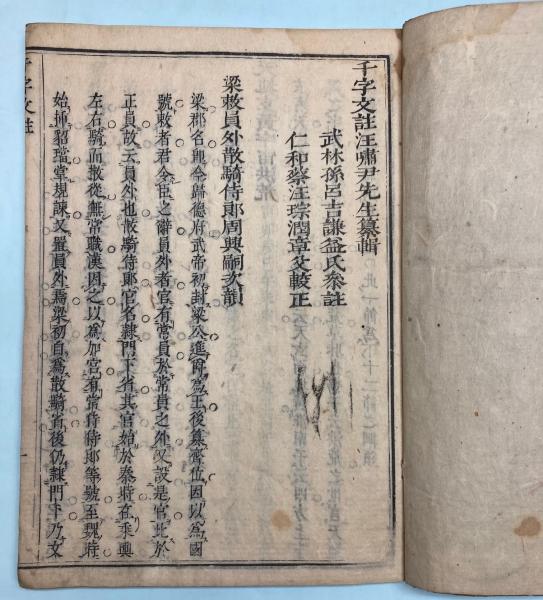 千字文註汪嘯尹先生纂輯
武林孫呂吉謙益氏參註
仁和蔡汪琮潤章父較正
梁敕員外散騎侍郎周興嗣次韻
梁郡名卽今歸德府武帝初封梁公進爵為王後篡齊位因以為國
號敕者君令臣之辭員外者官有常員於常員之外又設是官此於
正員故云員外也散騎侍郎官名隸門下省其官始於秦時在乘輿
左右騎而散從無常職漢因之以為加官有常侍侍郎等號至魏時
始挿貂璫掌規諫又置員外焉梁初自為散騎省後仍隸門下乃文
千字文註